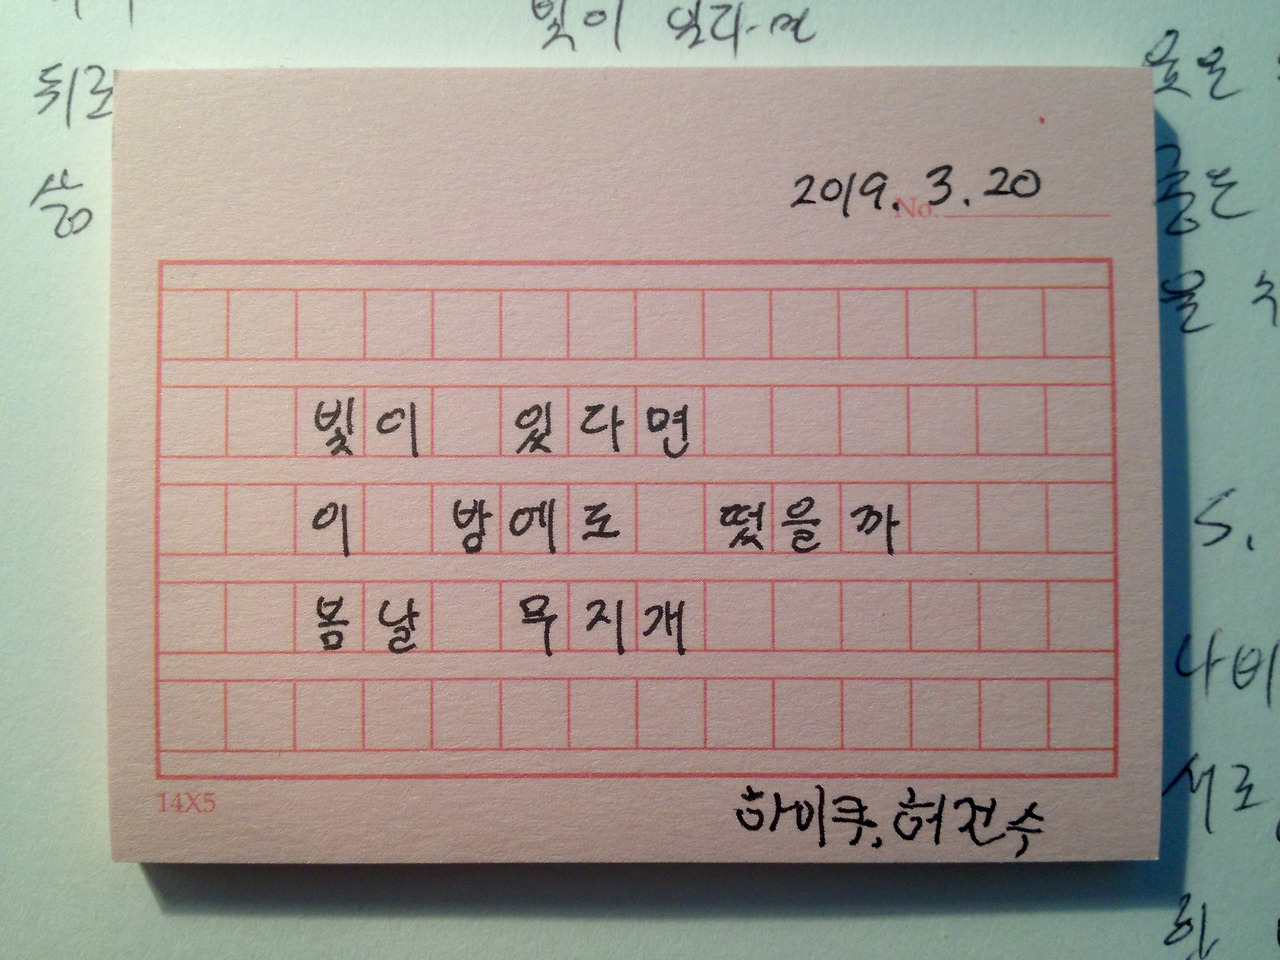 빛이 있다면
뒤로
2019. 3. 20
No.
빛이 있다면
이 밤에도 떴을까
봄날 무지개
14X5
하이쿠, 허건수
5.
나비
서로